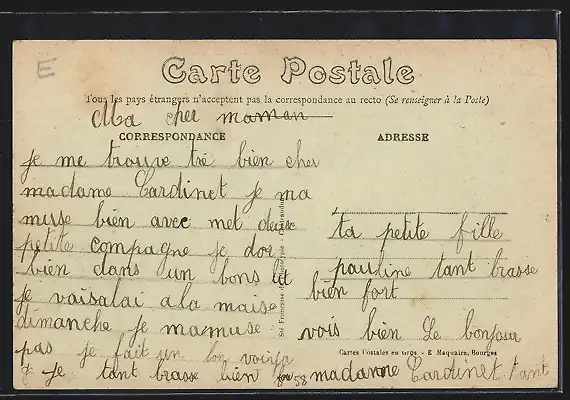 E
Carte Postale
Tous les pays étrangers n'acceptent pas la correspondance au recto (Se renseigner à la Poste)
Ma cher maman
CORRESPONDANCE
je me trouve tré bien cher
madame Cardinet je ma
muse bien avec met deuse
petite compagne je dor
bien dans un bons lit
je vaisalai a la maise
dimanche je mamuse
pas je fait un bon
je tant brasse bien for
ADRESSE
ta petite fille
pauline tant brasse
bien fort
vois bien le bonjour
Cartes Postales en Gros - E Maquaire, Bourges
58
madame Cardinet tant